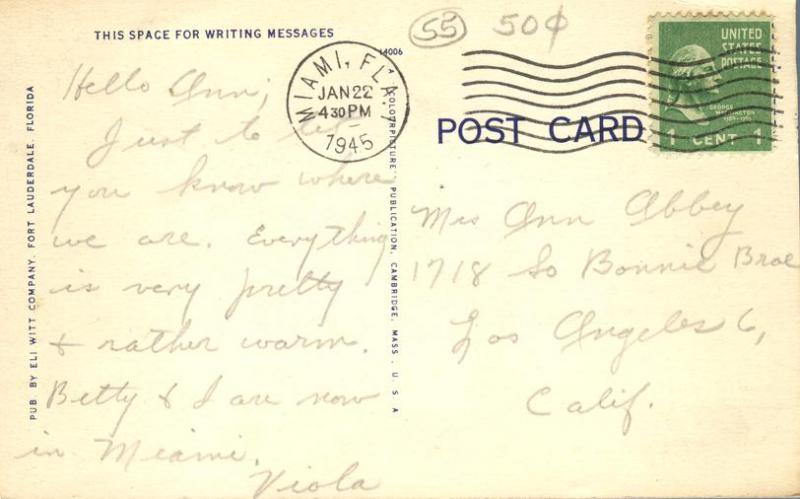 THIS SPACE FOR WRITING MESSAGES
14006
55 50¢
Hello Ann;
Just to let
you know where
we are. Everything
is very pretty
& rather warm.
Betty & I are now
in Miami.
Viola
PUB. BY ELI WITT COMPANY, FORT LAUDERDALE, FLORIDA
A "COLORPICTURE" PUBLICATION, CAMBRIDGE, MASS., U. S. A
MIAMI, FLA.
JAN 22
4 30 PM
1945
POST CARD
UNITED
STATES
POSTAGE
GEORGE
WASHINGTON
1 CENT 1
Mrs Ann Abbey
1718 So Bonnie Brae
Los Angeles 6,
Calif.